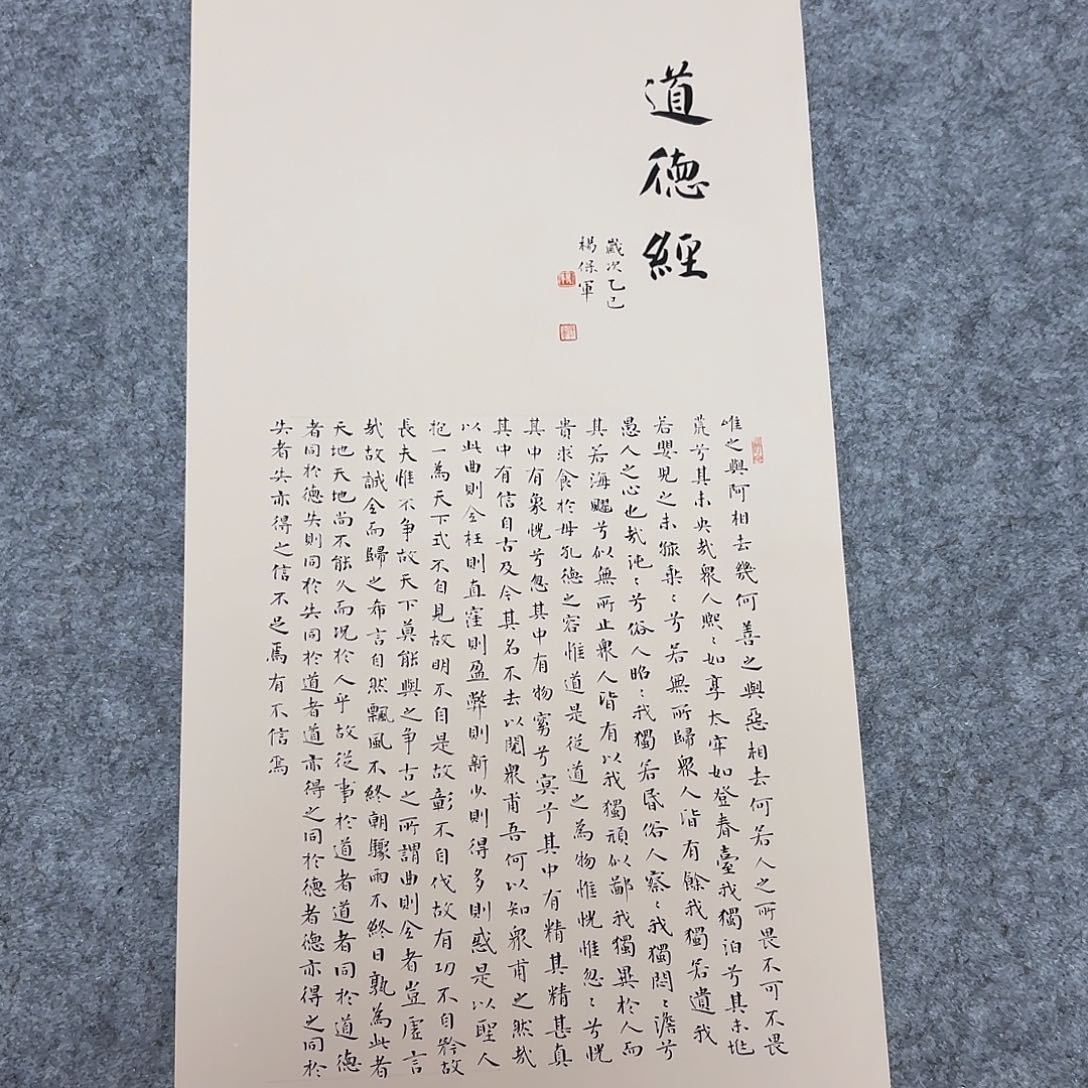 道德經
歲次乙巳
楊保軍
唯之與阿相去幾何善之與惡相去何若人之所畏不可不畏
荒兮其未央哉衆人熙〻如享太牢如登春臺我獨泊兮其未兆
若嬰兒之未孩乘〻兮若無所歸衆人皆有餘我獨若遺我
愚人之心也哉沌〻兮俗人昭〻我獨若昏俗人察〻我獨悶〻澹兮
其若海飂兮似無所止衆人皆有以我獨頑似鄙我獨異於人而
貴求食於母孔德之容惟道是從道之為物惟恍惟忽〻兮恍
其中有象恍兮忽其中有物窈兮冥兮其中有精其精甚真
其中有信自古及今其名不去以閱衆甫吾何以知衆甫之然哉
以此曲則全枉則直窪則盈弊則新少則得多則惑是以聖人
抱一為天下式不自見故明不自是故彰不自伐故有功不自矜故
長夫惟不争故天下莫能與之争古之所謂曲則全者豈虛言
哉故誠全而歸之希言自然飄風不終朝驟雨不終日孰為此者
天地天地尚不能久而況於人乎故從事於道者道者同於道德
者同於德失則同於失同於道者道亦得之同於德者德亦得之同於
失者失亦得之信不足焉有不信焉